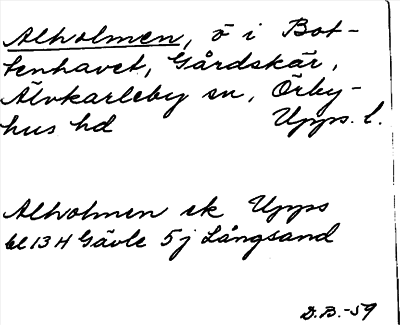 Alholmen, ö i Bot-
tenhavet, Gårdskär,
Älvkarleby sn, Örby-
hus hd Upps. l.
Alholmen ek Upps
bl 13 H Gävle 5j Långsand
D.B.-59